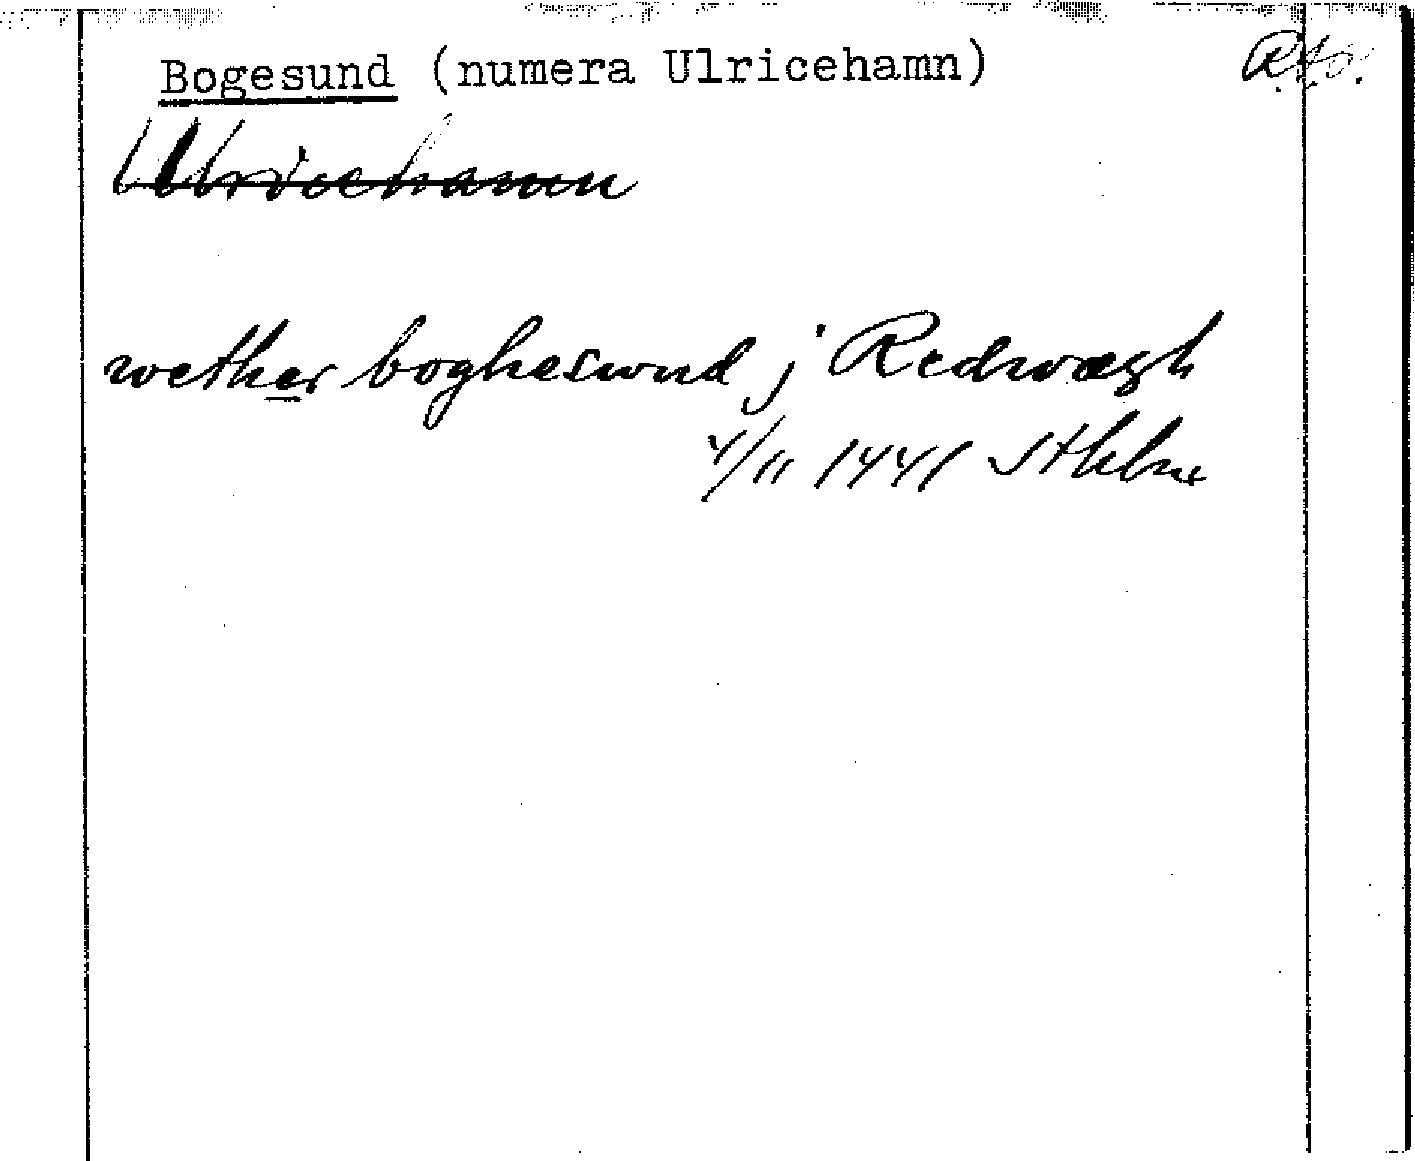 Bogesund (numera Ulricehamn)
Ulricehamn
wether boghesund j Redwægh
4/11 1441 Sthbr